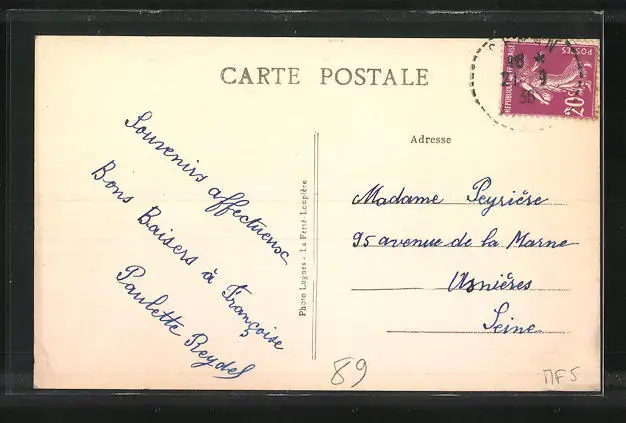 CARTE POSTALE
REPUBLIQUE FRANÇAISE
POSTES
20c
Adresse
Souvenirs affectueux
Bons Baisers à Françoise
Paulette Reydel
Photo Lugnes - La Ferté-Loupière
Madame Peyrière
95 avenue de la Marne
Asnières
Seine
89
MF5